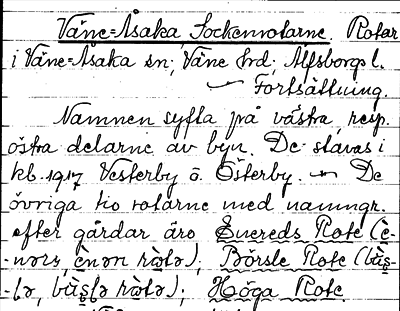 Väne-Åsaka Sockenrotarne. Rotar
i Väne-Åsaka sn; Väne hrd; Älfsborgs l.
— Fortsättning.
Namnen syfta på västra resp.
östra delarne av byn. De stavas i
kb. 1917 Vesterby o. Österby. — De
övriga tio rotarne med namngr.
efter gårdar äro Evereds Rote (è-
Börsle Rote (
Höga Rote.